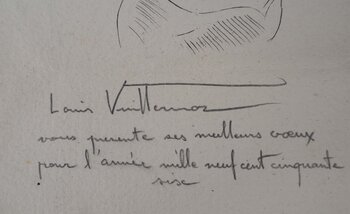 Louis Vuillermoz
vous presente ses meilleurs vœux
pour l'année mille neuf cent cinquante
sise